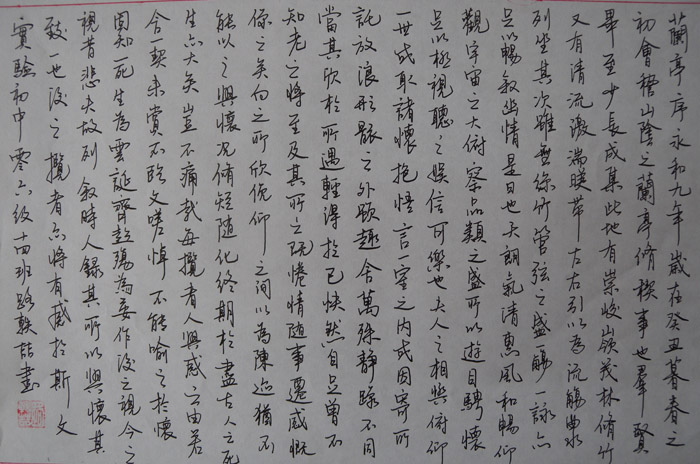 蘭亭序永和九年歲在癸丑暮春之
初會稽山陰之蘭亭脩稧事也羣賢
畢至少長咸集此地有崇峻嶺茂林脩竹
又有清流激湍暎帶左右引以為流觴曲水
列坐其次雖無絲竹管弦之盛觴一詠亦
足以暢叙幽情是日也天朗氣清惠風和暢仰
觀宇宙之大俯察品類之盛所以遊目騁懷
足以極視聽之娛信可樂也夫人之相與俯仰
一世或取諸懷抱悟言一室之内或因寄所
託放浪形骸之外雖趣舍萬殊静躁不同
當其欣於所遇輕得於己快然自足曾不
知老之將至及其所之既惓情隨事遷感慨
係之矣向之所欣俛仰之间以為陳迹猶不
能以之興懷况脩短隨化終期於盡古人之死
生亦大矣豈不痛哉每攬昔人興感之由若
合一契未嘗不臨文嗟悼不能喻之於懷
固知一死生為虛誕齊彭殤為妄作後之視今之
視昔悲夫故列叙時人錄其所以興懷其
致一也後之攬者亦將有感於斯文
實驗初中零六級十四班路軼喆書